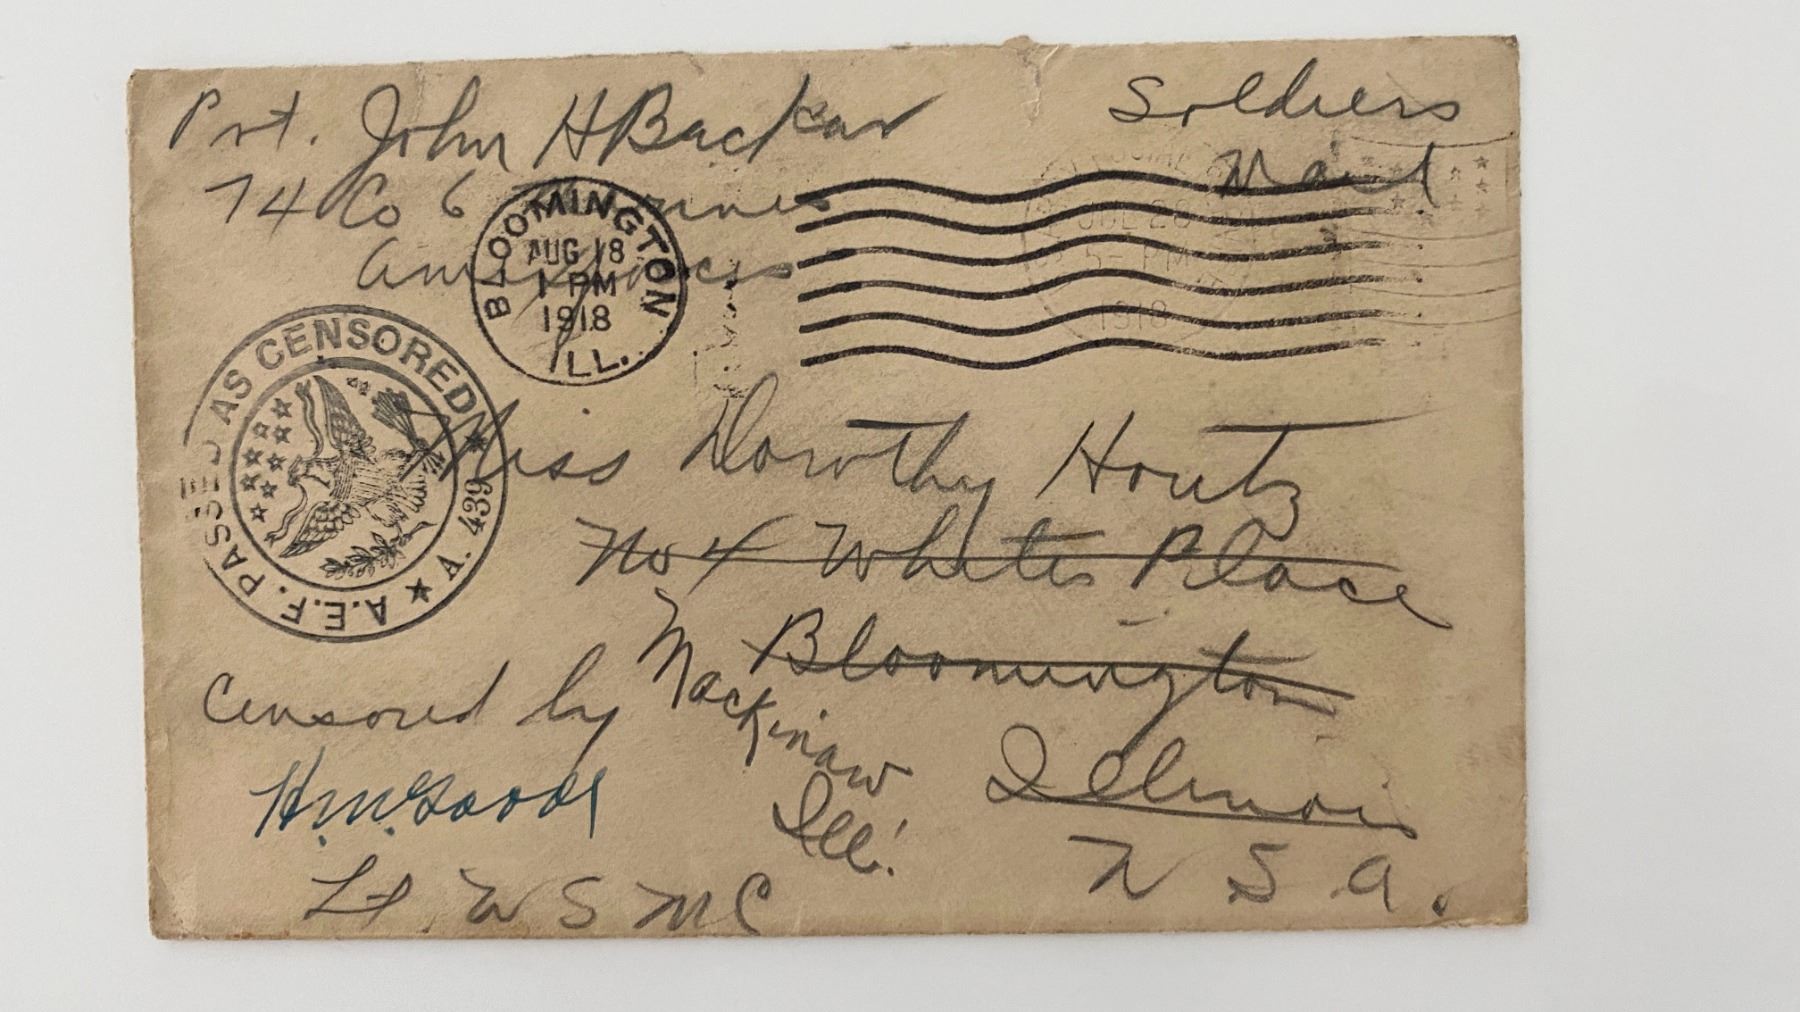 Pvt. John H Backar
Soldiers
Mail
74 Co 6
BLOOMINGTON
AUG 18
1 PM
1918
ILL.
JUL 28
5- PM
1918
PASSED AS CENSORED
A.E.F. A. 439
Miss Dorothy Houtz
No 4 Whites Place
Bloomington
Mackinaw
Ill.
Illinois
U S A.
Censored by
Lt. U S M C